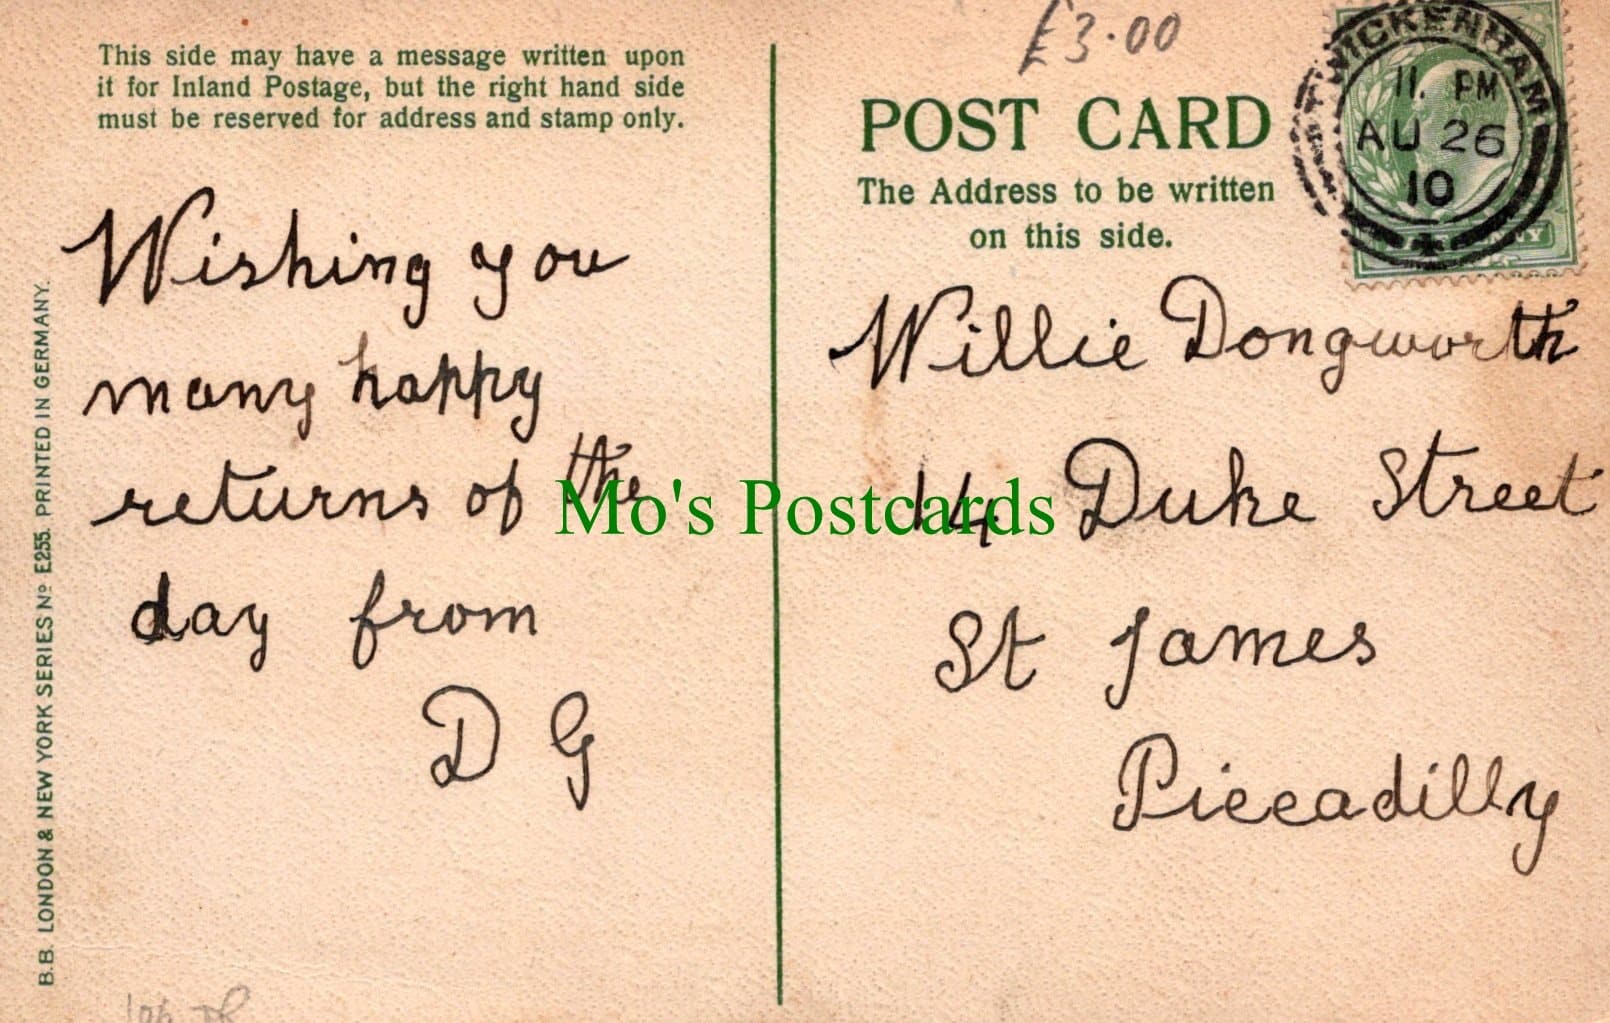 This side may have a message written upon
it for Inland Postage, but the right hand side
must be reserved for address and stamp only.
Wishing you
many happy
returns of the
day from
D G
B.B. LONDON & NEW YORK SERIES Nº E255. PRINTED IN GERMANY.
£3.00
POST CARD
The Address to be written
on this side.
TWICKENHAM
11. PM
AU 26
10
Willie Dongworth
14 Duke Street
St James
Piccadilly
Mo's Postcards